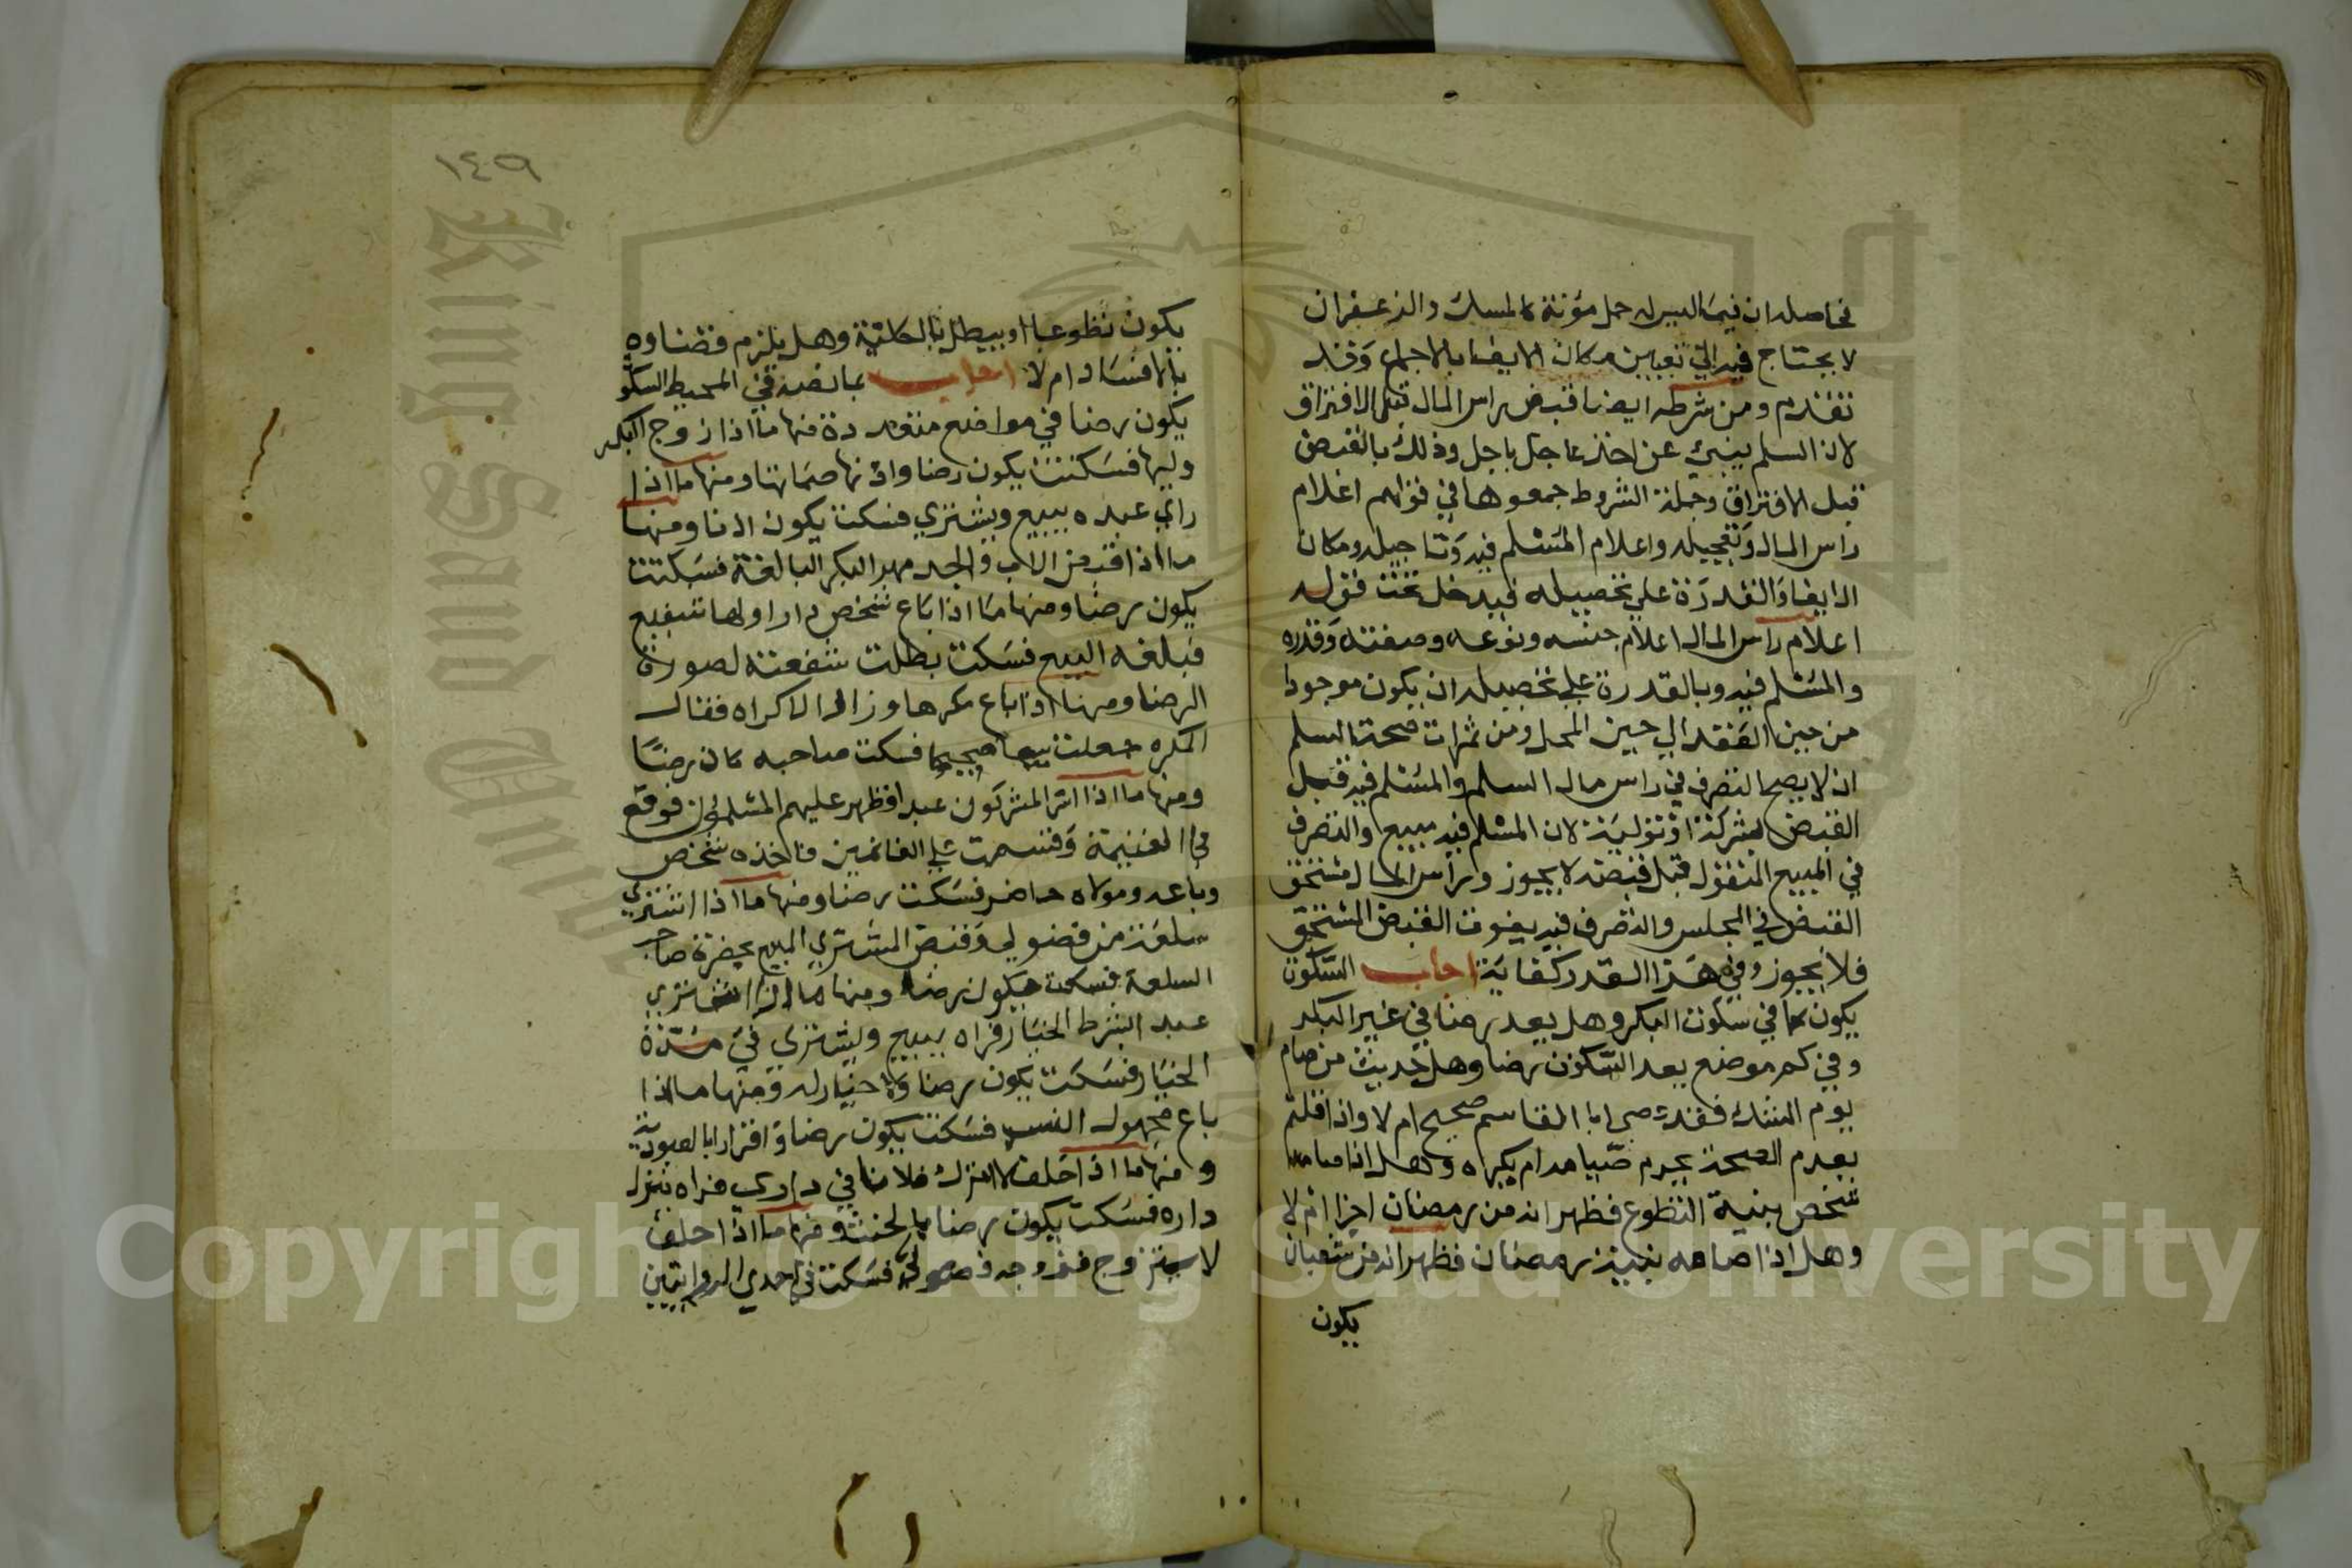 فحاصله ان فيما ليس له حمل مؤنة كالمسك والزعفران
لا يحتاج فيه الي تعيين مكان الايفا بالاجماع وقد
تقدم ومن شرطه ايضا قبض راس المال قبل الافتراق
لان السلم ينبي عن اخذ عاجل باجل وذلك بالقبض
قبل الافتراق وجملة الشروط جمعوها في قولهم اعلام
راس المال وتعجيله واعلام المسلم فيه وتاجيله ومكان
الايفا والقدرة علي تحصيله فيدخل تحت قوله
اعلام راس المال اعلام جنسه ونوعه وصفته وقدره
والمسلم فيه وبالقدرة علي تحصيله ان يكون موجودا
من حين العقد الي حين المحل ومن ثمرات صحة السلم
ان لا يصح التصرف في راس مال السلم والمسلم فيه قبل
القبض بشركة او تولية لان المسلم فيه مبيع والتصرف
في المبيع المنقول قبل قبضه لا يجوز وراس المال مستحق
القبض في المجلس والتصرف فيه يفوت القبض المستحق
فلا يجوز وفي هذا القدر كفاية اجاب السكوت
يكون كما في سكوت البكر وهل يعد رضا في غير البكر
وفي كم موضع يعد السكوت رضا وهل حديث من صام
يوم الشك فقد عصي ابا القاسم صحيح ام لا واذا قلتم
بعدم الصحة يحرم صيامه ام يكره وهل اذا صامه
شخص بنية التطوع فظهر انه من رمضان اجزا ام لا
وهل اذا صامه بنية رمضان فظهر انه من شعبان
يكون
١٤٩
يكون تطوعا او يبطل بالكلية وهل يلزم قضاوه
بالافساد ام لا اجاب بما نصه في المحيط السكو
يكون رضا في مواضع متعددة منها ما اذا زوج البكر
وليها فسكتت يكون رضا واذنها صماتها ومنها ما اذا
راي عبده يبيع ويشتري فسكت يكون اذنا ومنها
ما اذا قبض الاب والجد مهر البكر البالغة فسكتت
يكون رضا ومنها ما اذا باع شخص دارا ولها شفيع
فبلغه البيع فسكت بطلت شفعته لصورة
الرضا ومنها اذا باع مكرها وزال الاكراه فقال
المكره جعلت بيعا صحيحا فسكت صاحبه كان رضا
ومنها ما اذا اسر المشركون عبدا فظهر عليهم المسلمون فوقع
في الغنيمة وقسمت علي الغانمين فاخذه شخص
وباعه ومولاه حاضر فسكت رضا ومنها ما اذا اشتري
سلعة من فضولي وقبض المشتري المبيع بحضرة صاحب
السلعة فسكت فيكون رضا ومنها ما اذا اشتري
عبد ابشرط الخيار فراه يبيع ويشتري في مدة
الخيار فسكت يكون رضا ولا خيار له ومنها ما اذا
باع مجهول النسب فسكت يكون رضا واقرارا بالعبودية
ومنها ما اذا حلف لا انزل فلانا في داري فراه نزل
داره فسكت يكون رضا بالحنث ومنها ما اذا حلف
لا يتزوج فزوجه فضولي فسكت في احدي الروايتين
Copyright © King Saud University
King Saud University